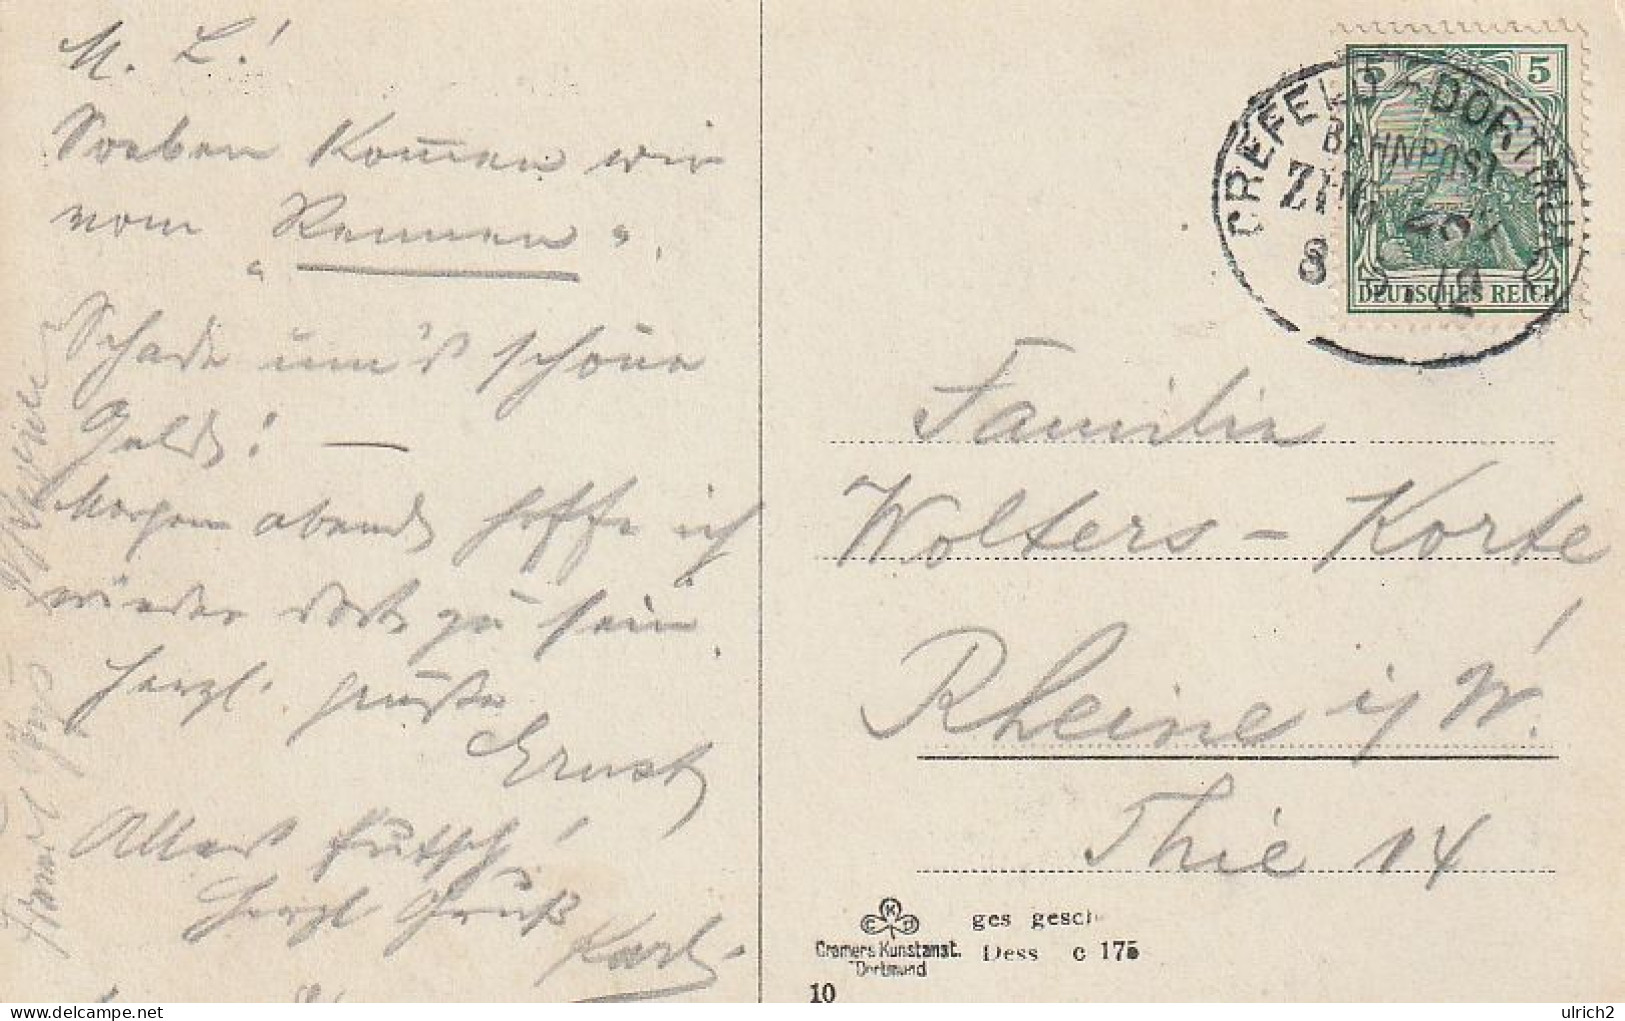 M. L.!
Soeben kommen wir
vom „Rennen“.
Schade um's schöne
Geld! —
Morgen abend hoffe ich
wieder dort zu sein.
Herzl. Grüße
Ernst
Alles futsch!
Herzl Gruß
Karl
5 5
DEUTSCHES REICH
CREFELD - DORTMUND
BAHNPOST
ZUG
8 12
Familie
Wolters - Korte
Rheine i/W.
Thie 14
CKD
Cramers Kunstanst.
Dortmund
ges gesch
Dess c 175
10
ulrich2